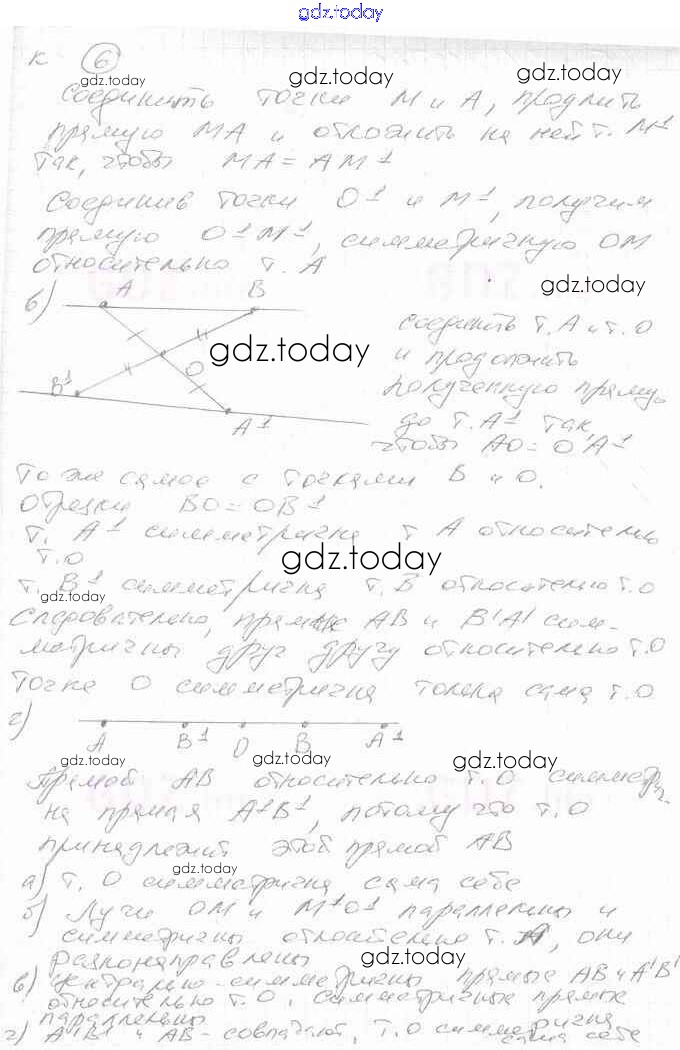 gdz.today
к 6
gdz.today
gdz.today
Соединить точки М и А, продлить
gdz.today
gdz.today
прямую МА и отложить на ней т. М¹
так, чтобы МА = АМ¹
Соединив точки О¹ и М¹, получим
прямую О¹М¹, симметричную ОМ
относительно т. А
gdz.today
в)
А В
О
В¹
А¹
gdz.today
соединить т. А и т. О
и продолжить
полученную прямую
до т. А¹ так,
чтобы АО = О А¹
То же самое с точками В и О.
Отрезки ВО = ОВ¹
т. А¹ симметрична т. А относительно
т. О
gdz.today
т. В¹ симметрична т. В относительно т. О
gdz.today
Следовательно, прямые АВ и В'А' сим-
метричны друг другу относительно т. О
Точке О симметрична только сама т. О
г)
А В¹ О В А¹
gdz.today
gdz.today
gdz.today
Прямой АВ относительно т. О симметрич-
на прямая А¹В¹, потому что т. О
принадлежит этой прямой АВ
gdz.today
а) т. О симметрична сама себе
б) Лучи ОМ и М¹О¹ параллельны и
симметричны относительно т. А, они
разнонаправлены
gdz.today
в) Центрально-симметричны прямые АВ и А'В'
относительно т. О. Симметричные прямые
параллельны
г) А¹В¹ и АВ - совпадают, т. О симметрична
сама себе